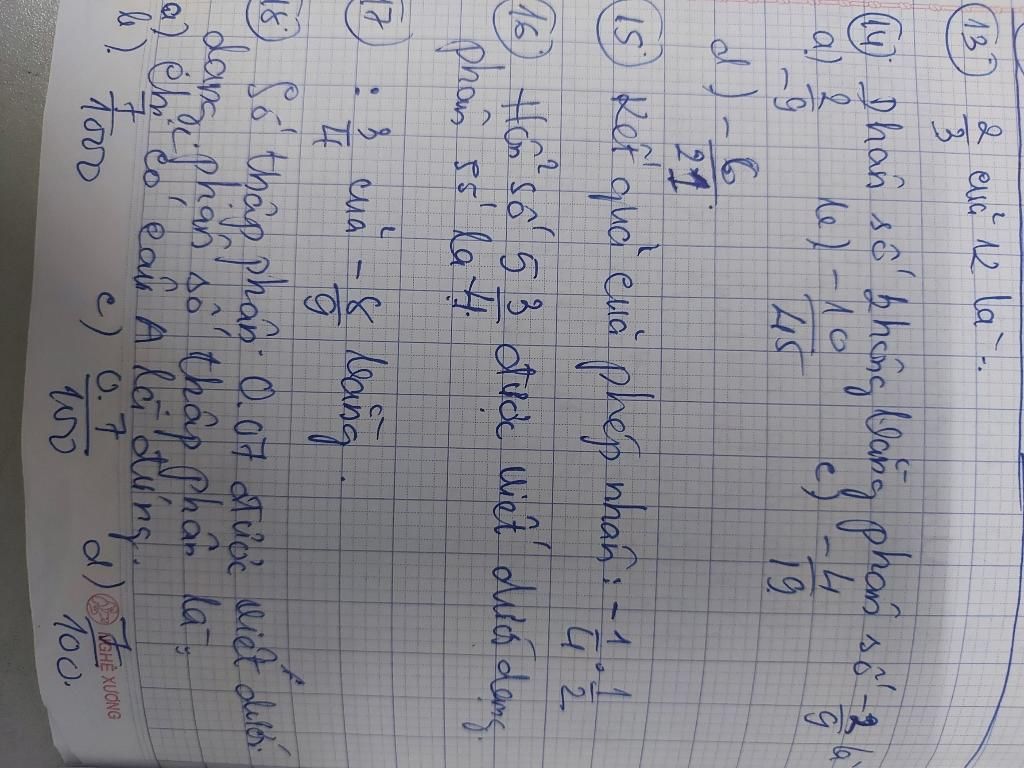 13) 2/3 của 12 là:
14) Phân số không bằng phân số -2/9 là
a) 2/-9 b) -10/45 c) -4/19
d) -6/27.
15) Kết quả của phép nhân: -1/4 . 1/2
16) Hỗn số 5 3/4 được viết dưới dạng
phân số là
17) : 3/4 của -8/9 bằng.
18) Số thập phân. 0.07 được viết dưới
dạng. phân số thập phân là:
a) chỉ có câu A là đúng.
b). 7/1000 c) 0.7/100 d) 7/100.
NGHÊ XƯƠNG